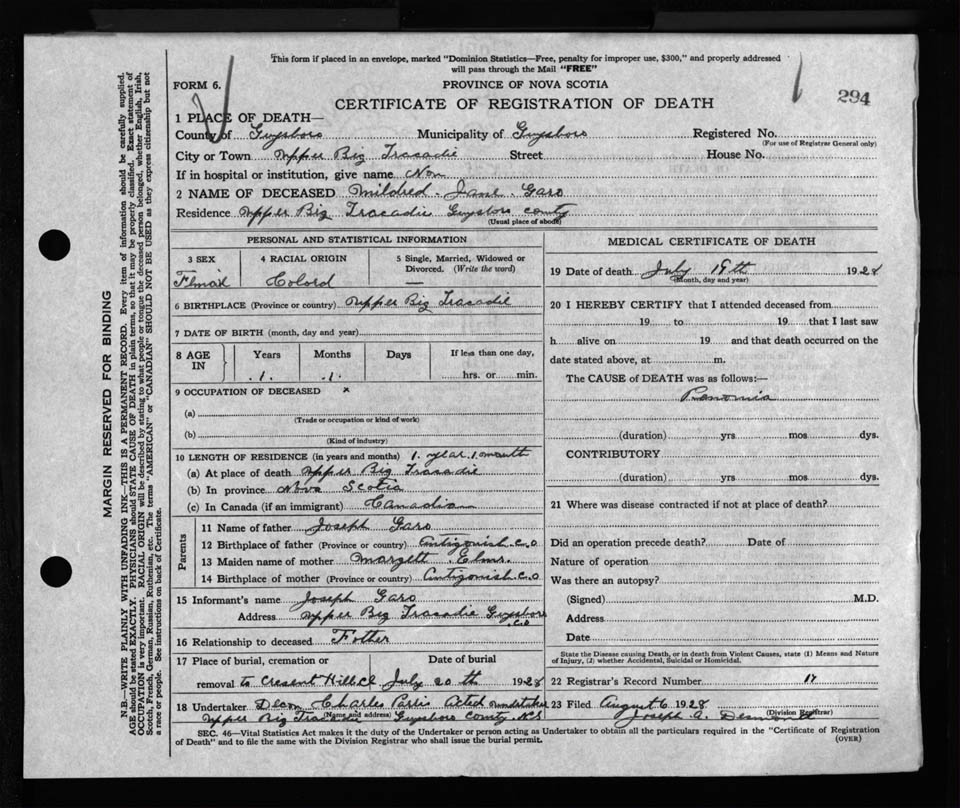 This form if placed in an envelope, marked "Dominion Statistics—Free, penalty for improper use, $300," and properly addressed
will pass through the Mail "FREE"
FORM 6.
PROVINCE OF NOVA SCOTIA
294
CERTIFICATE OF REGISTRATION OF DEATH
1 PLACE OF DEATH—
County of Guysboro Municipality of Guysboro Registered No.
(For use of Registrar General only)
City or Town Upper Big Tracadie Street House No.
If in hospital or institution, give name Non
2 NAME OF DECEASED Mildred Jane Garo
Residence Upper Big Tracadie Guysboro county
(Usual place of abode)
PERSONAL AND STATISTICAL INFORMATION
3 SEX 4 RACIAL ORIGIN 5 Single, Married, Widowed or
Divorced. (Write the word)
Flmail Colord —
6 BIRTHPLACE (Province or country) Upper Big Tracadie
7 DATE OF BIRTH (month, day and year)
8 AGE IN Years Months Days If less than one day,
1 1 hrs. or min.
9 OCCUPATION OF DECEASED x
(a)
(Trade or occupation or kind of work)
(b)
(Kind of industry)
10 LENGTH OF RESIDENCE (in years and months) 1 year 1 month
(a) At place of death Upper Big Tracadie
(b) In province Nova Scotia
(c) In Canada (if an immigrant) Canadian
Parents
11 Name of father Joseph Garo
12 Birthplace of father (Province or country) Antigonish C.O
13 Maiden name of mother Margett
14 Birthplace of mother (Province or country) Antigonish C.O
15 Informant's name Joseph Garo
Address Upper Big Tracadie Guysboro
C.O
16 Relationship to deceased Father
17 Place of burial, cremation or Date of burial
removal to Cresent Hill July 20th 1928
18 Undertaker Decon Charles Paris Acted undertaker
(Name and address)
Upper Big Tracadie Guysboro County N.S
MEDICAL CERTIFICATE OF DEATH
19 Date of death July 19th 1928
(Month, day and year)
20 I HEREBY CERTIFY that I attended deceased from
19 to 19 that I last saw
h alive on 19 and that death occurred on the
date stated above, at m.
The CAUSE OF DEATH was as follows:—
Panomia
(duration) yrs mos dys.
CONTRIBUTORY
(duration) yrs mos dys.
21 Where was disease contracted if not at place of death?
Did an operation precede death? Date of
Nature of operation
Was there an autopsy?
(Signed) M.D.
Address
Date
State the Disease causing Death, or in death from Violent Causes, state (1) Means and Nature
of Injury, (2) whether Accidental, Suicidal or Homicidal.
22 Registrar's Record Number 17
23 Filed August 6 1928
Joseph A. Desmond
(Division Registrar)
SEC. 46—Vital Statistics Act makes it the duty of the Undertaker or person acting as Undertaker to obtain all the particulars required in the "Certificate of Registration
of Death" and to file the same with the Division Registrar who shall issue the burial permit.
(OVER)
MARGIN RESERVED FOR BINDING
N.B.—WRITE PLAINLY WITH UNFADING INK—THIS IS A PERMANENT RECORD. Every item of information should be carefully supplied.
AGE should be stated EXACTLY. PHYSICIANS should STATE CAUSE OF DEATH in plain terms, so that it may be properly classified. Exact statement of
OCCUPATION is very important. RACIAL ORIGIN will be described by stating to what people or tongue the deceased person belonged, whether English, Irish,
Scotch, French, German, Russian, Ruthenian, etc. The terms "AMERICAN" or "CANADIAN" SHOULD NOT BE USED as they express citizenship but not
a race or people. See instructions on back of Certificate.